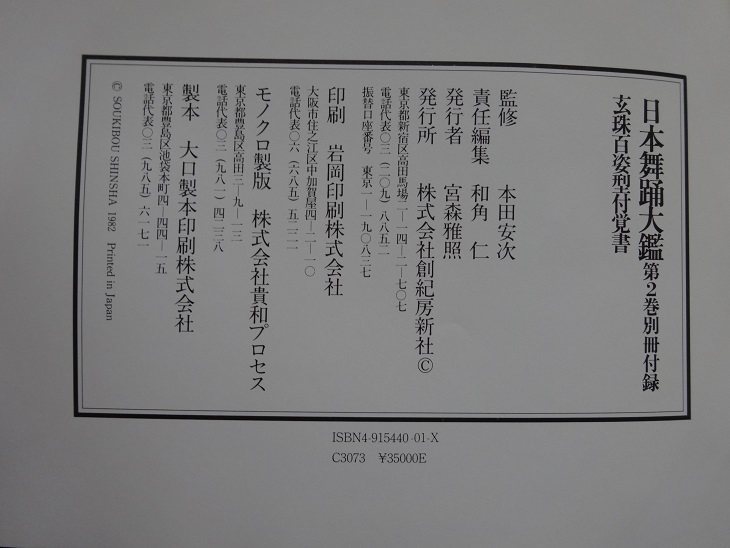 日本舞踊大鑑 第2巻別冊付録
玄珠百姿型付覚書
監修 本田安次
責任編集 和角 仁
発行者 宮森雅照
発行所 株式会社創紀房新社©
東京都新宿区高田馬場一―一四―二―七〇七
電話代表〇三(二〇九)八八五二
振替口座番号 東京一―一九〇八三七
印刷 岩岡印刷株式会社
大阪市住之江区中加賀屋四―二―一〇
電話代表〇六(六八五)五二二一
モノクロ製版 株式会社貴和プロセス
東京都豊島区高田三―九―一三
電話代表〇三(九八一)四二三八
製本 大口製本印刷株式会社
東京都豊島区池袋本町四―四四―一五
電話代表〇三(九八五)六一七一
© SOUKIBOU SHINSHA 1982 Printed in Japan
ISBN4-915440-01-X
C3073 ¥35000E